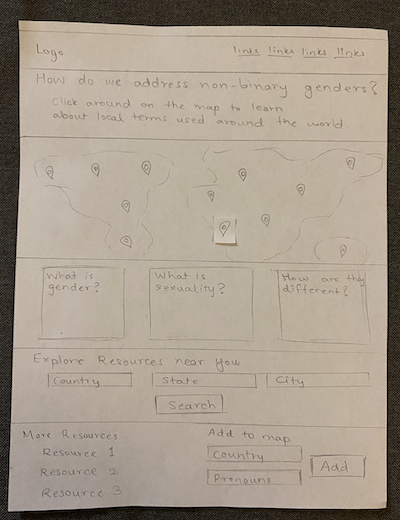 Logo
links links links links
How do we address non-binary genders?
Click around on the map to learn
about local terms used around the world
What is
gender?
What is
sexuality?
How are they
different?
Explore Resources near you
Country
State
City
Search
More Resources
Resource 1
Resource 2
Resource 3
Add to map
Country
Pronouns
Add